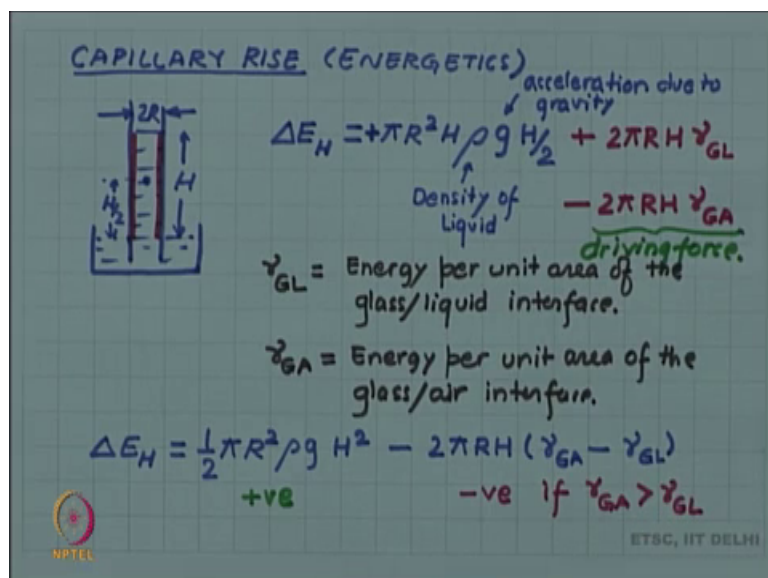 CAPILLARY RISE (ENERGETICS)
acceleration due to
gravity
2R
ΔE_H = +πR²H ρ g H/2 + 2πRH γ_GL
H
H/2
Density of
Liquid
- 2πRH γ_GA
driving force.
γ_GL = Energy per unit area of the
glass/liquid interface.
γ_GA = Energy per unit area of the
glass/air interface.
ΔE_H = 1/2 πR²ρg H² - 2πRH (γ_GA - γ_GL)
+ve -ve if γ_GA > γ_GL
NPTEL
ETSC, IIT DELHI